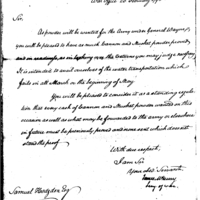 War Office 20 February 179
Sir,
As powder will be wanted for the Army under General Wayne,
you will be pleased to have as much Cannon and Musket powder proved,
and in readiness, as in
It is intended to avail ourselves of the water transportation which
fails in all March or the beginning of May.
You will be pleased to consider it as a standing regulation
that every cask of Cannon and Musket powder wanted on this
occasion as well as what may be forwarded to the army or elsewhere
in future must be previously proved and none sent which does not
stand the proof.
With due respect,
I am Sir
Your obd Servant
James McHenry
Secy of War
Samuel Hodgdon Esq